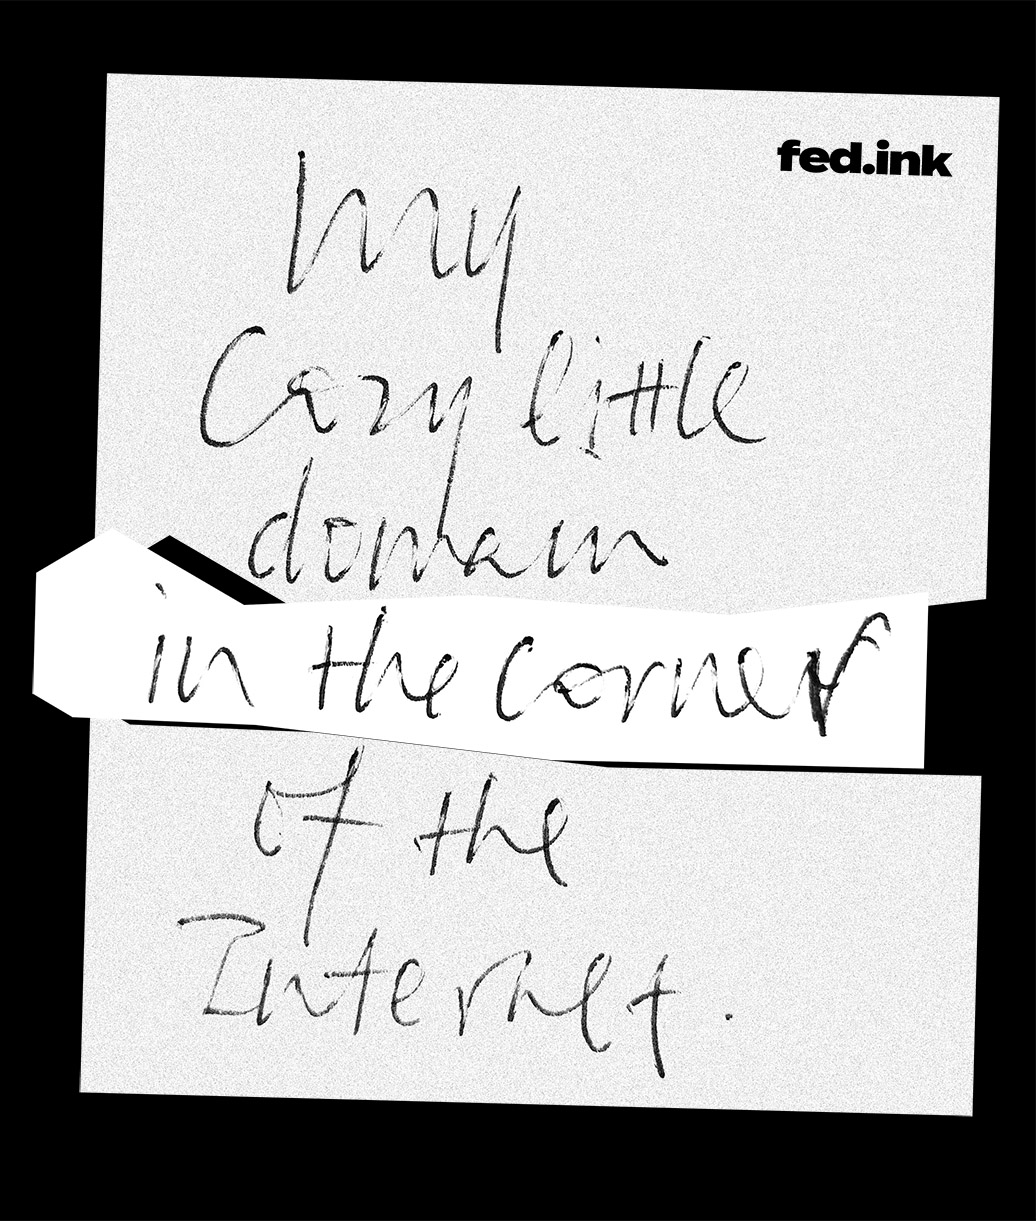 fed.ink
my
Cozy little
domain
in the corner
of the
Internet.